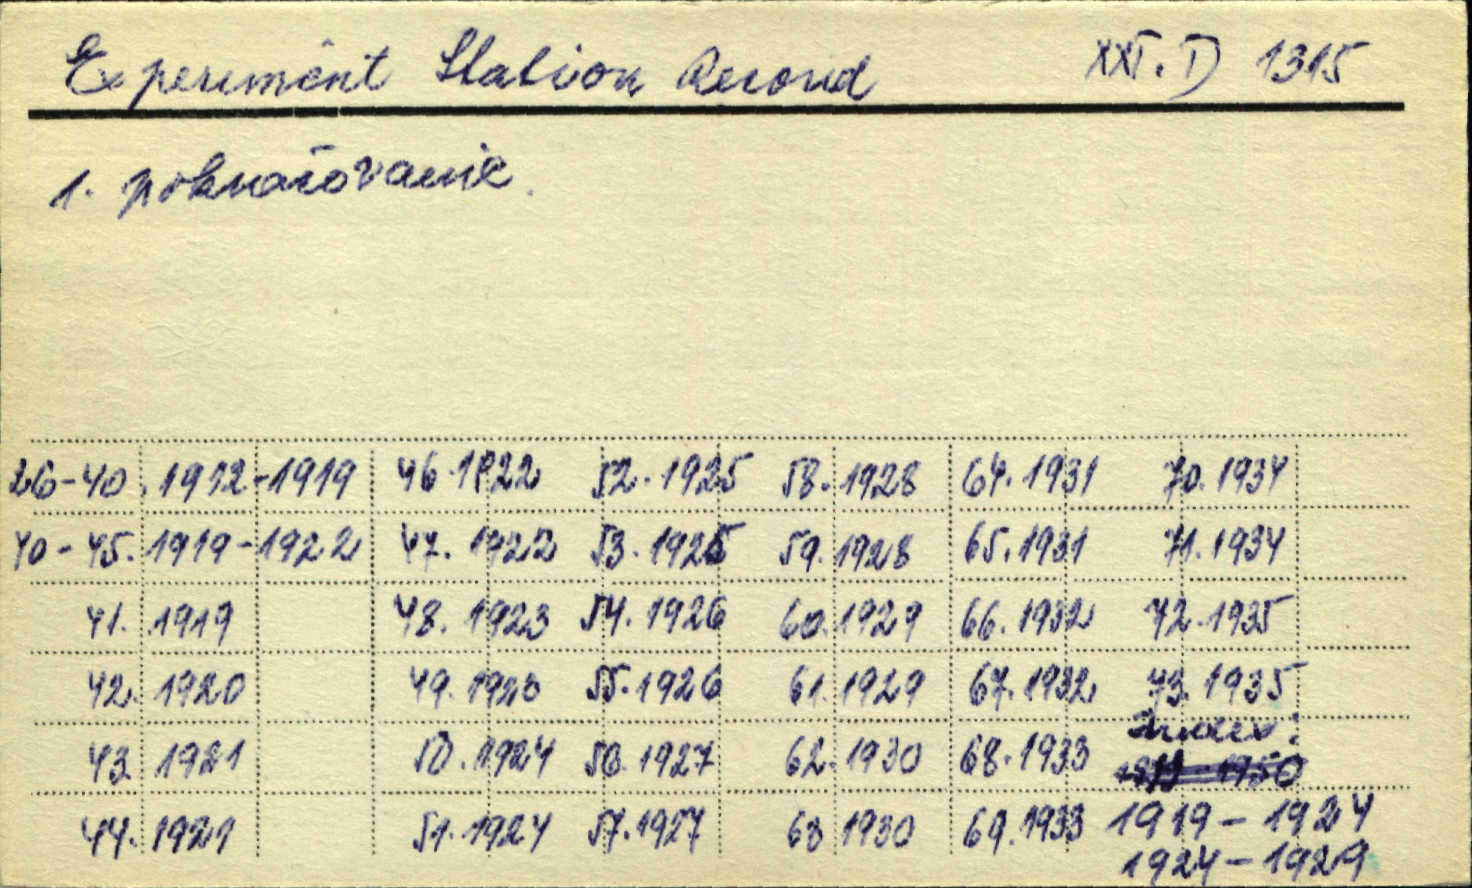 Experiment Station Record XXI. D 1315
1. pokračovanie.
26-40. 1912-1919 46. 1922 52. 1925 58. 1928 64. 1931 70. 1934
40-45. 1919-1922 47. 1922 53. 1925 59. 1928 65. 1931 71. 1934
41. 1919 48. 1923 54. 1926 60. 1929 66. 1932 72. 1935
42. 1920 49. 1923 55. 1926 61. 1929 67. 1932 73. 1935
Index:
43. 1921 50. 1924 56. 1927 62. 1930 68. 1933
44. 1921 51. 1924 57. 1927 63 1930 69. 1933 1919-1924
1924-1929